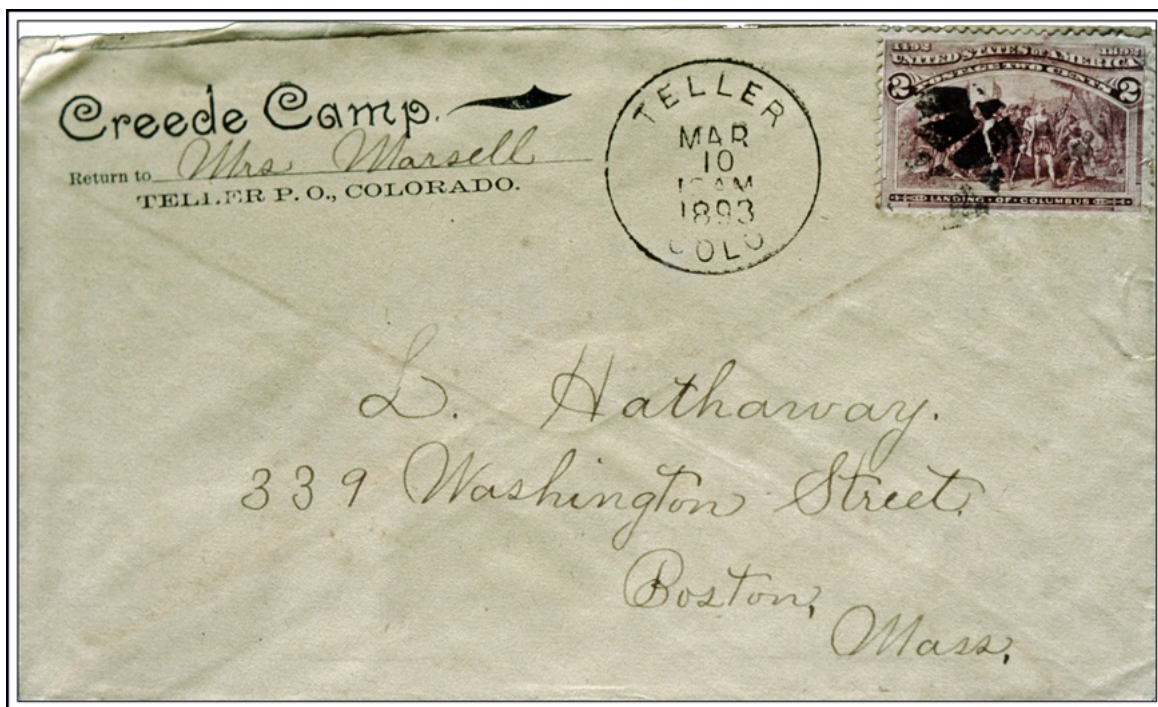 Creede Camp.
Return to Mrs Marsell
TELLER P. O., COLORADO.
TELLER
MAR
10
AM
1893
COLO
1492 1892
UNITED STATES OF AMERICA
POSTAGE TWO CENTS
2 2
LANDING OF COLUMBUS
L. Hathaway.
339 Washington Street.
Boston,
Mass,